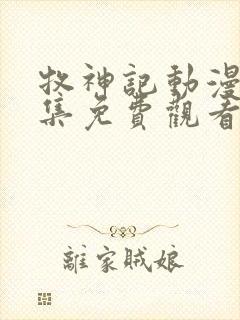 牧神記動漫
集免費觀看
離家賊娘